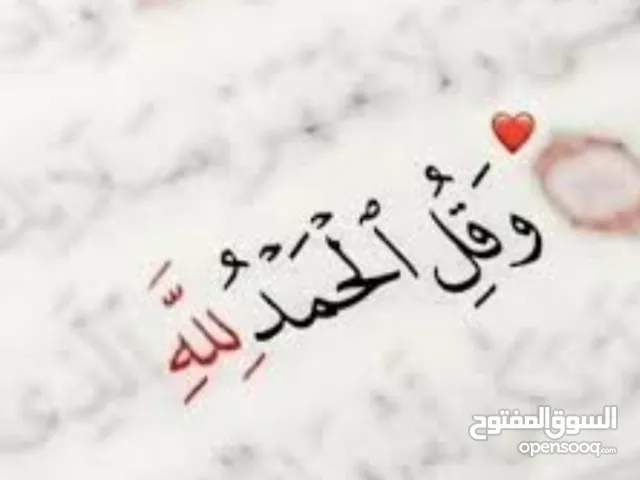 وَقُلِ ٱلْحَمْدُ لِلَّهِ
السوق المفتوح
opensooq.com